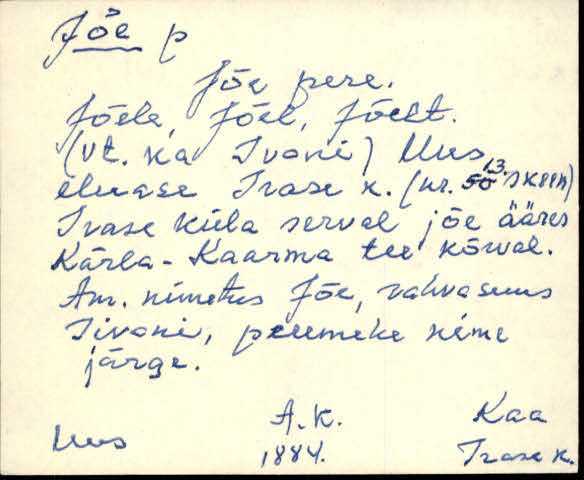 Jõe p
Jõe pere.
Jõele, Jõel, Jõelt.
(Vt. ka Ivoni) Uus
eluase Irase k. (nr. 13. skeem)
Irase küla serval jõe ääres
Kärla-Kaarma tee kõrval.
Am. nimetus Jõe, rahvasuus
Iivoni, peremehe nime
järge.
A.K. Kaa
Uus 1884. Irase k.